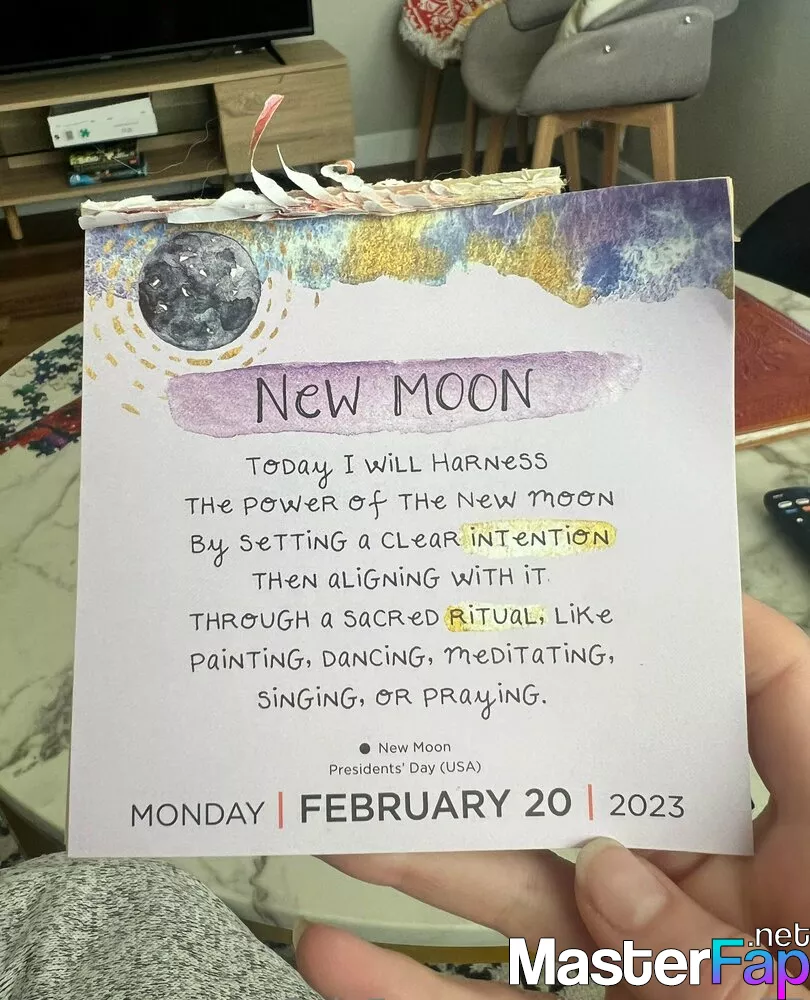 New Moon
Today I will harness
the power of the new moon
by setting a clear intention
then aligning with it
through a sacred ritual, like
painting, dancing, meditating,
singing, or praying.
● New Moon
Presidents' Day (USA)
MONDAY | FEBRUARY 20 | 2023
.net
MasterFap